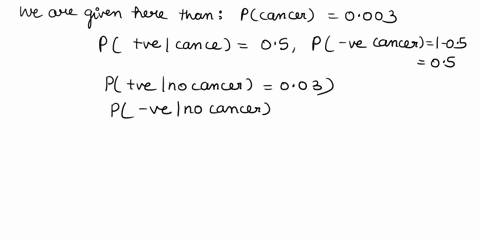 We are given here than: P(cancer) = 0.003
P( +ve | cance) = 0.5, P( -ve cancer) = 1-0.5
= 0.5
P( +ve | no cancer) = 0.03)
P( -ve | no cancer)